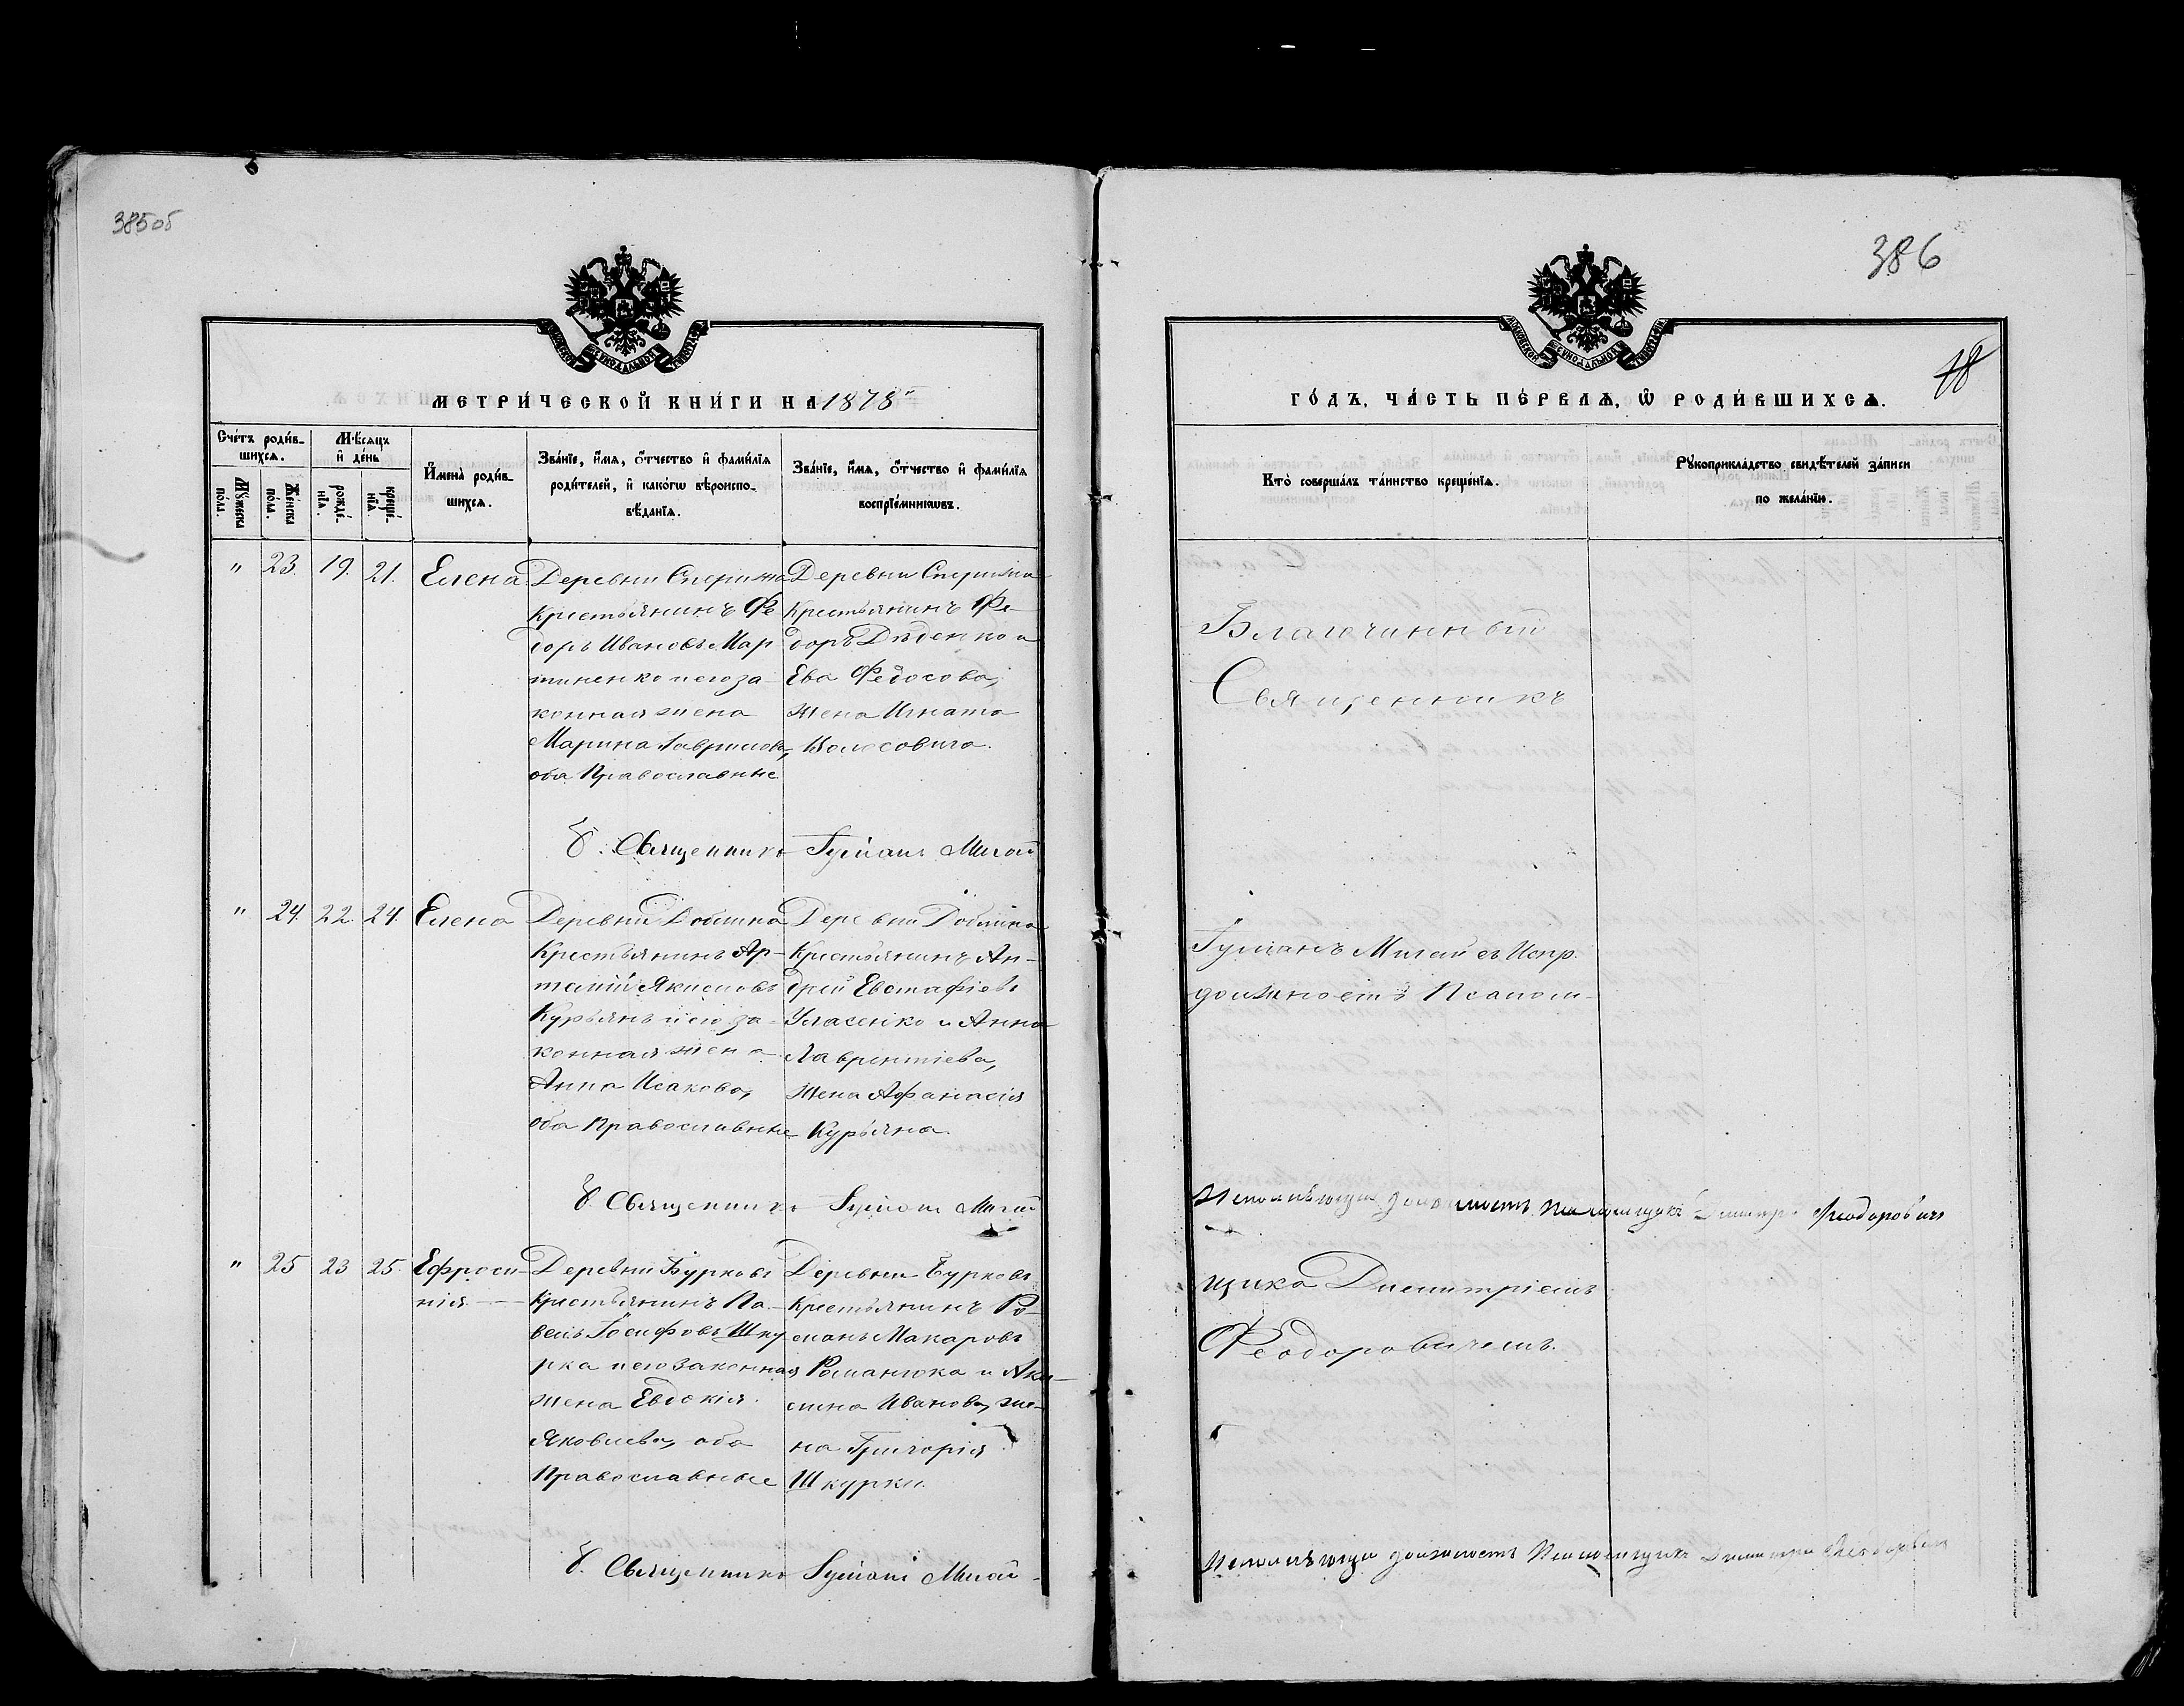 385 об
386
18
МЕТРИЧЕСКОЙ КНИГИ НА 1878
ГОДЪ, ЧАСТЬ ПЕРВАЯ, Ѿ РОДИВШИХСЯ.
Счетъ родив-
шихся.
Мѣсяцъ
и день
Мужеска
пола.
Женска
пола.
рожде-
нія.
креще-
нія.
Имена родив-
шихся.
Званіе, имя, отчество и фамилія
родителей, и какогѡ вѣроиспо-
вѣданія.
Званіе, имя, отчество и фамилія
воспріемниковъ.
Кто совершалъ таинство крещенія.
Рукоприкладство свидѣтелей записи
по желанію.
" 23. 19. 21. Елена
Деревни
Крестьянинъ Фе
доръ Ивановъ Мар
тиненко и его за-
конная жена
Марина Гаврилова,
оба Православные
Деревни
Крестьянинъ Фе-
доръ Дѣденко и
Ева Федосова,
жена Игната
Колосовича.
Благочинный
Священникъ
Священникъ Мигай
" 24. 22. 24. Елена
Деревни
Крестьянинъ Ар-
темій Якимовъ
Курьянъ и его за-
конная жена
Анна Исакова,
оба Православные
Деревни
Крестьянинъ Ан-
дрей Евстафіевъ
Уласенко и Анна
Лаврентіева,
жена Афанасія
Курьяна.
Мигай съ Испр.
должность Псалом-
Священникъ Мигай
Исполняющій должность Псаломщика Димитрій Феодоровичъ
" 25 23 25. Ефроси-
нія.
Деревни Бурковъ
Крестьянинъ Па-
велъ Іосифовъ Шку
рка и его законная
жена Евдокія
Яковлева, оба
Православные
Деревни Бурковъ
Крестьянинъ Ро-
манъ Макаровъ
Романюка и Аку-
лина Иванова, же-
на Григорія
Шкурки.
щика Димитріемъ
Феодоровичемъ.
Священникъ Мигай
Исполняющій должность Псаломщика Димитрій